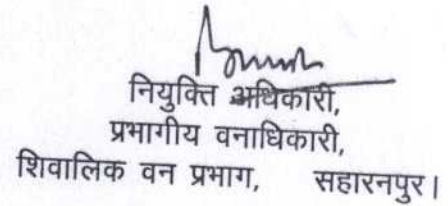 नियुक्ति अधिकारी,
प्रभागीय वनाधिकारी,
शिवालिक वन प्रभाग, सहारनपुर।